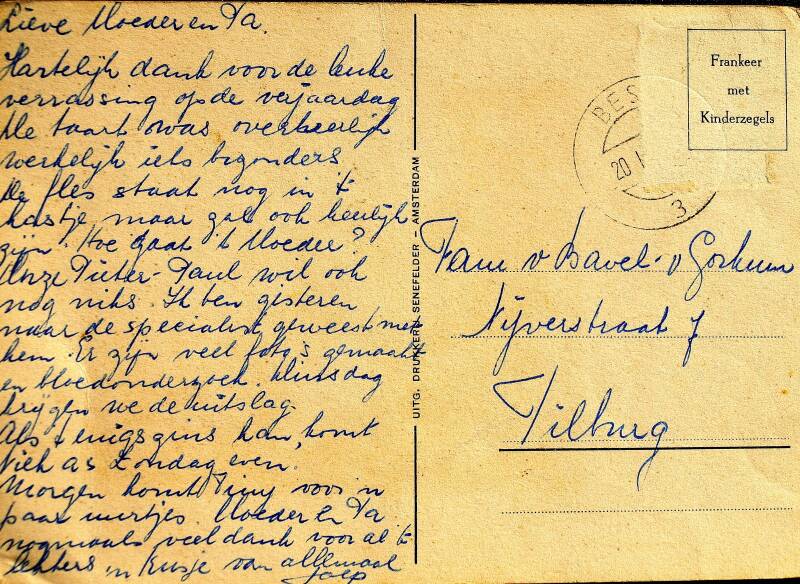 Lieve Moeder en Pa.
Hartelijk dank voor de leuke
verrassing op de verjaardag
De taart was overheerlijk
werkelijk iets bezonders
De fles staat nog in 't
kastje maar zal ook heerlijk
zijn. Hoe gaat 't Moeder?
Onze Pieter-Paul wil ook
nog niks. Ik ben gisteren
naar de specialist geweest met
hem. Er zijn veel foto's gemaakt
en bloedonderzoek. Dinsdag
krijgen we de uitslag
Als 't enigszins kan, komt
as Zondag even.
Morgen komt Tiny voor 'n
paar uurtjes. Moeder en Pa
nogmaals veel dank voor al 't
lekkers, 'n kusje van allemaal
Joep
UITG. DRUKKERIJ SENEFELDER - AMSTERDAM
Frankeer
met
Kinderzegels
BES
20 I
3
Fam v Bavel-v Gorkum
Nijverstraat 7
Tilburg